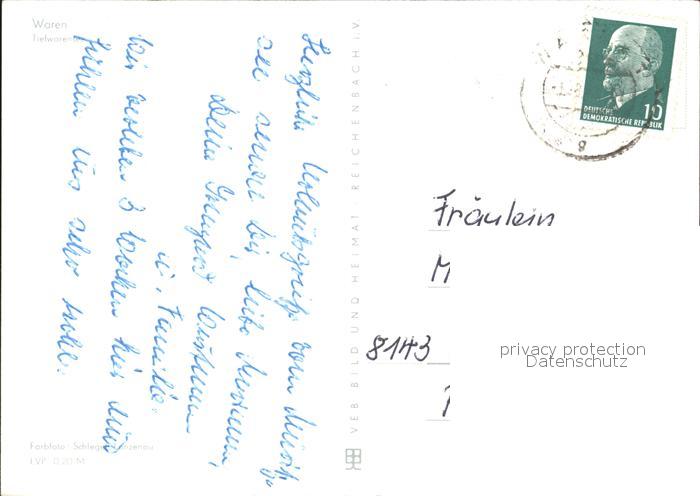 Waren
Herzliche Urlaubsgrüße vom Müritz
See sendet Dir, liebe
Deine
u. Familie.
Wir bleiben 3 Wochen hier und
fühlen uns sehr wohl.
Farbfoto: Schlegel,
LVP: 0,20 M
VEB BILD UND HEIMAT · REICHENBACH I.V.
DEUTSCHE
DEMOKRATISCHE REPUBLIK
10
Fräulein
M
8143
privacy protection
Datenschutz